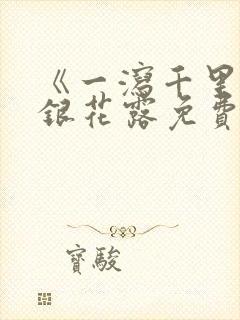 《一瀉千里
銀花露免費
寶駿